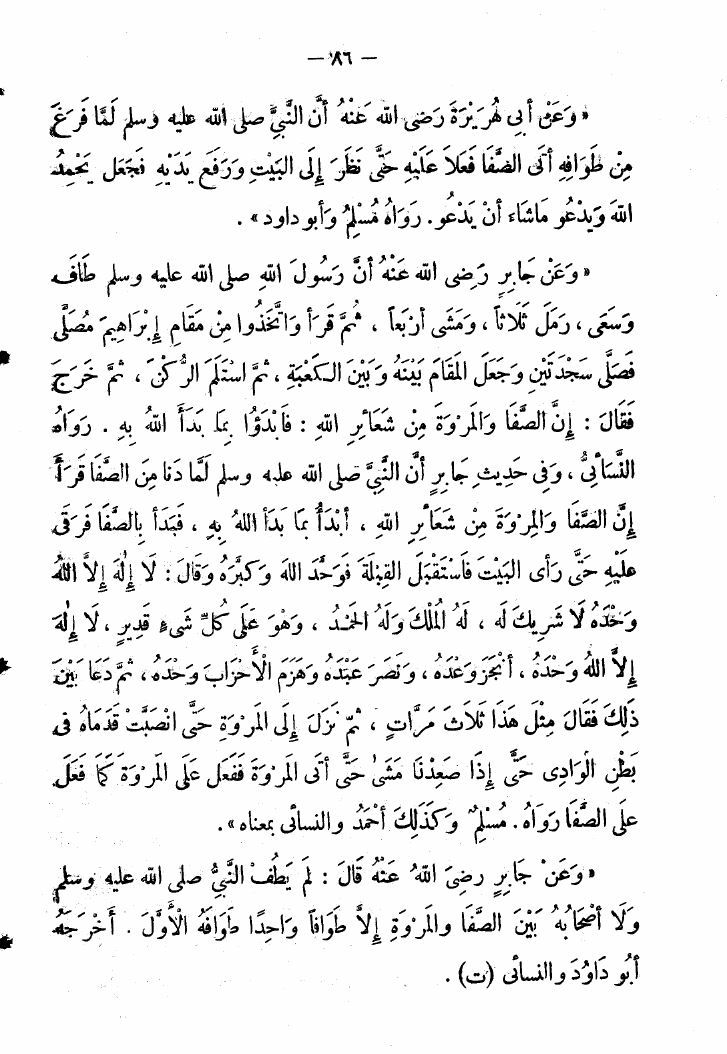 — ٨٦ —
« وَعَنْ أَبِى هُرَيْرَةَ رَضى الله عَنْهُ أَنَّ النَّبِيَّ صلى الله عليه وسلم لَمَّا فَرَغَ
مِنْ طَوَافِهِ أَتَى الصَّفَا فَعَلاَ عَلَيْهِ حَتَّى نَظَرَ إِلَى البَيْتِ وَرَفَعَ يَدَيْهِ فَجَعَل يَحْمِدُ
اللهَ وَيَدْعُو مَاشَاء أَنْ يَدْعُو . رَوَاهُ مُسْلِمٌ وَأَبو داود » .
« وَعَنْ جَابِرٍ رَضِى الله عَنْهُ أَنَّ رَسُولَ اللهِ صلى الله عليه وسلم طَافَ
وَسَعَى ، رَمَلَ ثَلَاثاً ، وَمَشَى أَرْبَعاً ، ثُمَّ قَرَأَ وَاتَّخَذُوا مِنْ مَقَامِ إِبْرَاهِيمَ مُصَلًّى
فَصَلَّى سَجْدَتَيْنِ وَجَعَلَ المَقَامَ بَيْنَهُ وَبَيْنَ الكَعْبَةِ ، ثم اسْتَلَمَ الرُّكْنَ ، ثُمَّ خَرَجَ
فَقَالَ : إِنَّ الصَّفَا وَالمَرْوَةَ مِنْ شَعَائِرِ اللهِ : فَابْدَؤُا بِمَا بَدَأَ اللهُ بِهِ . رَوَاهُ
النَّسَائِىُّ ، وَفِى حَدِيثِ جَابِرٍ أَنَّ النَّبِيَّ صلى الله عليه وسلم لَمَّا دَنَا مِنَ الصَّفَا قَرَأَ
إِنَّ الصَّفَا وَالمَرْوَةَ مِنْ شَعَائِرِ اللهِ ، أَبْدَأُ بِمَا بَدَأَ اللهُ بِهِ ، فَبَدَأَ بِالصَّفَا فَرَقَى
عَلَيْهِ حَتَّى رَأَى البَيْتَ فَاسْتَقْبَلَ القِبْلَةَ فَوَحَّدَ اللهَ وَكَبَّرَهُ وَقَالَ : لَا إِلٰهَ إِلاَّ اللهُ
وَحْدَهُ لَا شَرِيكَ لَه ، لَهُ المُلْكُ وَلَهُ الحَمْدُ ، وَهُوَ عَلَى كُلِّ شَىْءٍ قَدِيرٍ ، لَا إِلٰهَ
إِلاَّ اللهُ وَحْدَهُ ، أَنْجَزَ وَعْدَهُ ، وَنَصَرَ عَبْدَهُ وَهَزَمَ الأَحْزَابَ وَحْدَهُ ، ثُمَّ دَعَا بَيْنَ
ذَلِكَ فَقَالَ مِثْلَ هَذَا ثَلَاثَ مَرَّاتٍ ، ثُمَّ نَزَلَ إِلَى المَرْوَةِ حَتَّى انْصَبَّتْ قَدَمَاهُ فى
بَطْنِ الْوَادِى حَتَّى إِذَا صَعِدْنَا مَشَى حَتَّى أَتَى المَرْوَةَ فَفَعَلَ عَلَى المَرْوَةَ كَمَا فَعَلَ
عَلَى الصَّفَا رَوَاهُ . مُسْلِمٌ وَكَذَلِكَ أَحْمَدُ والنسائى بمعناه » .
« وَعَنْ جَابِرٍ رضِىَ اللهُ عَنْهُ قَالَ : لَمْ يَطُفْ النَّبِيُّ صلى الله عليه وسلم
وَلَا أَصْحَابُهُ بَيْنَ الصَّفَا والمَرْوَةِ إِلاَّ طَوَافاً وَاحِدًا طَوَافَهُ الأَوَّلَ . أَخْرَجَهُ
أَبُو دَاوُدَ والنسائى (ت) .